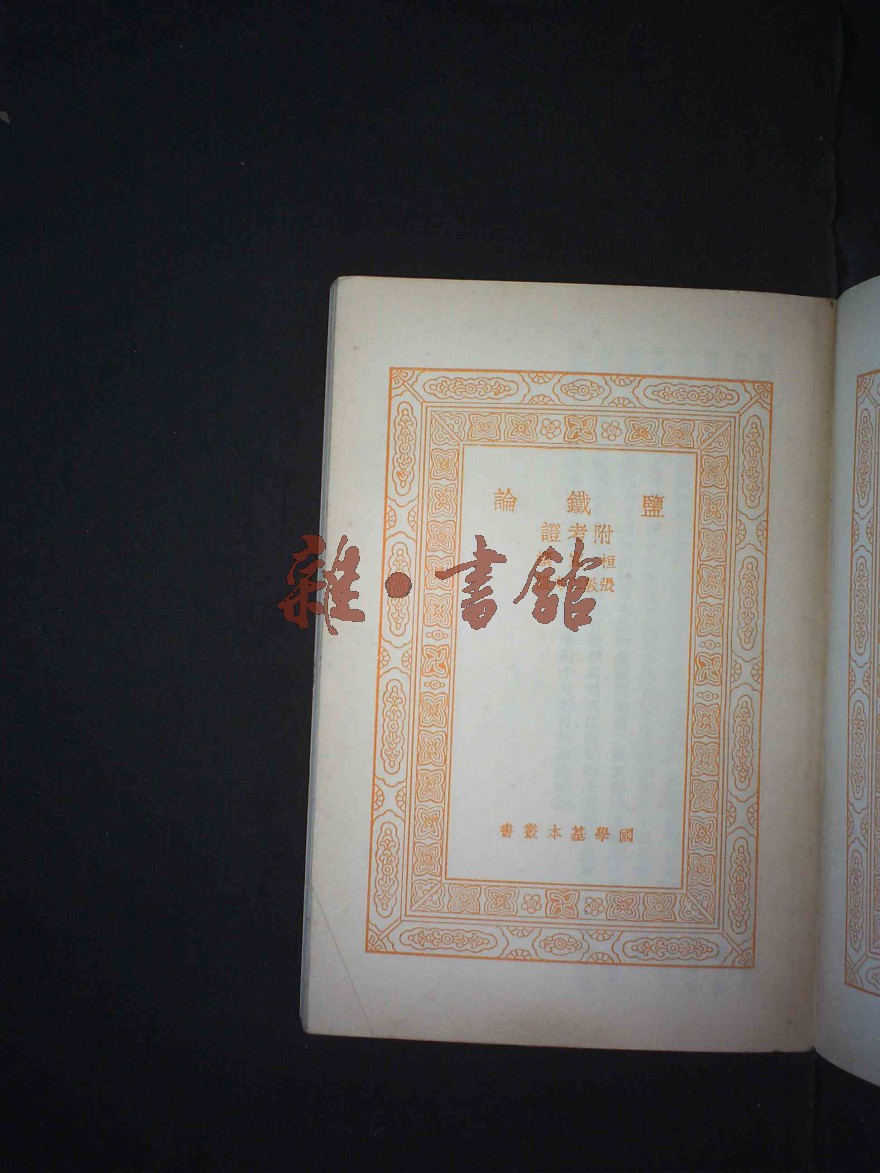 鹽鐵論
附考證
桓
張
國學基本叢書
雜·書館